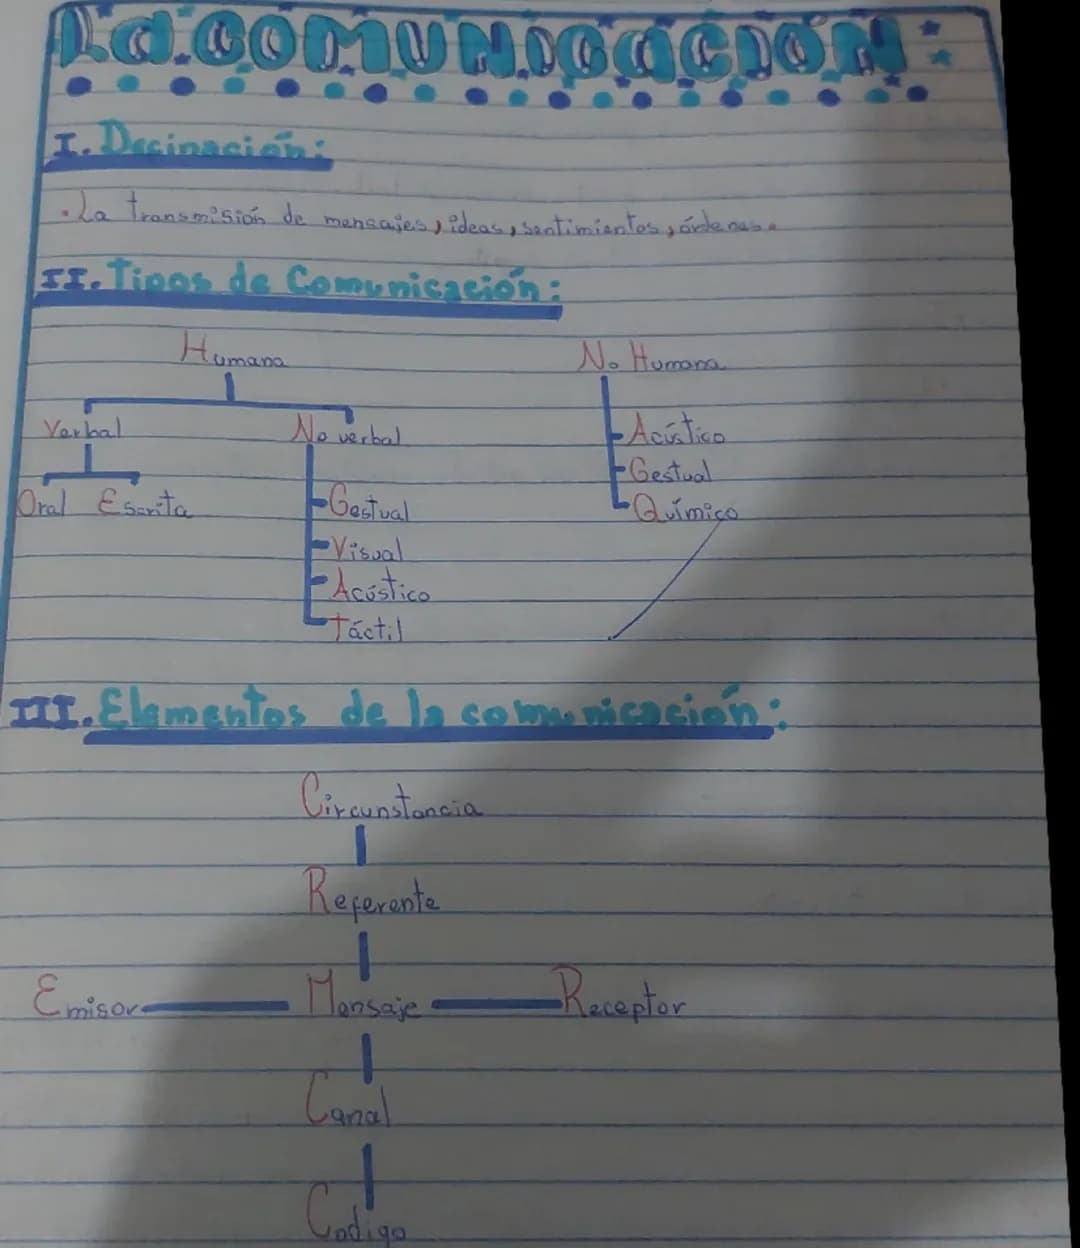 La COMUNICACIÓN
I. Decinación:
• La transmisión de mensajes, ideas, sentimientos, órdenes.
II. Tipos de Comunicación:
Humana No Humana
Verbal No verbal - Acústico
- Gestual
Oral Escrita - Gestual - Químico
- Visual
- Acústico
- Táctil
III. Elementos de la comunicación:
Circunstancia
Referente
Emisor Mensaje Receptor
Canal
Codigo